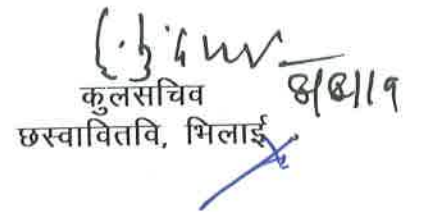 8/8/19
कुलसचिव
छस्वावितवि, भिलाई